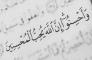 وَأَحْسِنُوا إِنَّ اللَّهَ يُحِبُّ الْمُحْسِنِينَ